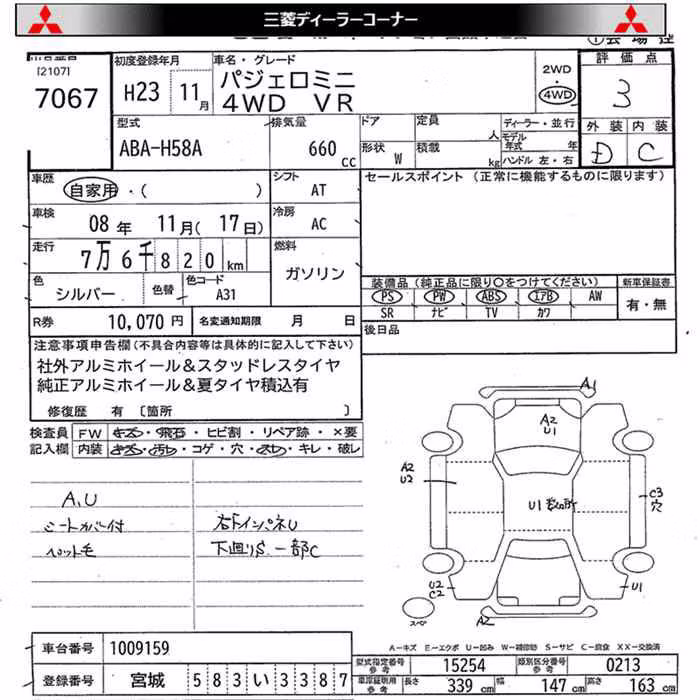 三菱ディーラーコーナー
[2107]
7067
初度登録年月
H23 11月
車名・グレード
パジェロミニ
4WD VR
2WD
・
4WD
評価点
3
外装 内装
D C
型式
ABA-H58A
排気量
660 cc
ドア
形状 W
定員 人
積載 kg
ディーラー・並行
モデル年式 年
ハンドル 左・右
車歴
自家用・( )
シフト
AT
セールスポイント (正常に機能するものに限ります)
車検
08年 11月(17日)
冷房
AC
走行
7万6千820km
燃料
ガソリン
色
シルバー
色替
色コード
A31
装備品(純正品に限り○をつけてください)
新車保証書
PS PW ABS エアB AW
SR ナビ TV カワ
有・無
R券 10,070円
名変通知期限 月 日
後日品
注意事項申告欄(不具合内容等は具体的に記入して下さい)
社外アルミホイール&スタッドレスタイヤ
純正アルミホイール&夏タイヤ積込有
修復歴 有 [箇所 ]
検査員 FW キズ・飛石・ヒビ割・リペア跡・×要
記入欄 内装 キズ・汚レ・コゲ・穴・スレ・キレ・破レ
A,U
シートカバー付
ペット毛
右下インパネU
下廻りS 一部C
A1
A2
U1
A2
U2
U1 数ヶ所
C3
穴
U2
C2
U1
A2
スペア
A-キズ E-エクボ U-凹み W-補修跡 S-サビ C-腐食 XX-交換済
車台番号 1009159
登録番号 宮城 583い3387
型式指定番号 参考 15254
類別区分番号 参考 0213
車庫証明用 参考 長さ 339cm 幅 147cm 高さ 163cm